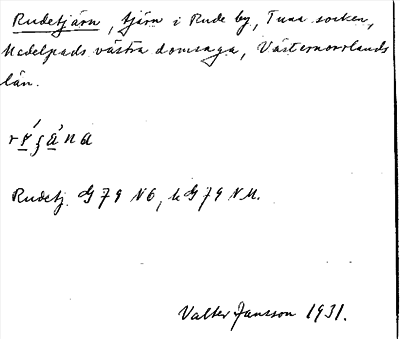 Rudetjärn, tjärn i Rude by, Tuna socken,
Medelpads västra domsaga, Västernorrlands
län.
Rudetj. G 79 N6, k G 79 NM.
Valter Jansson 1931.